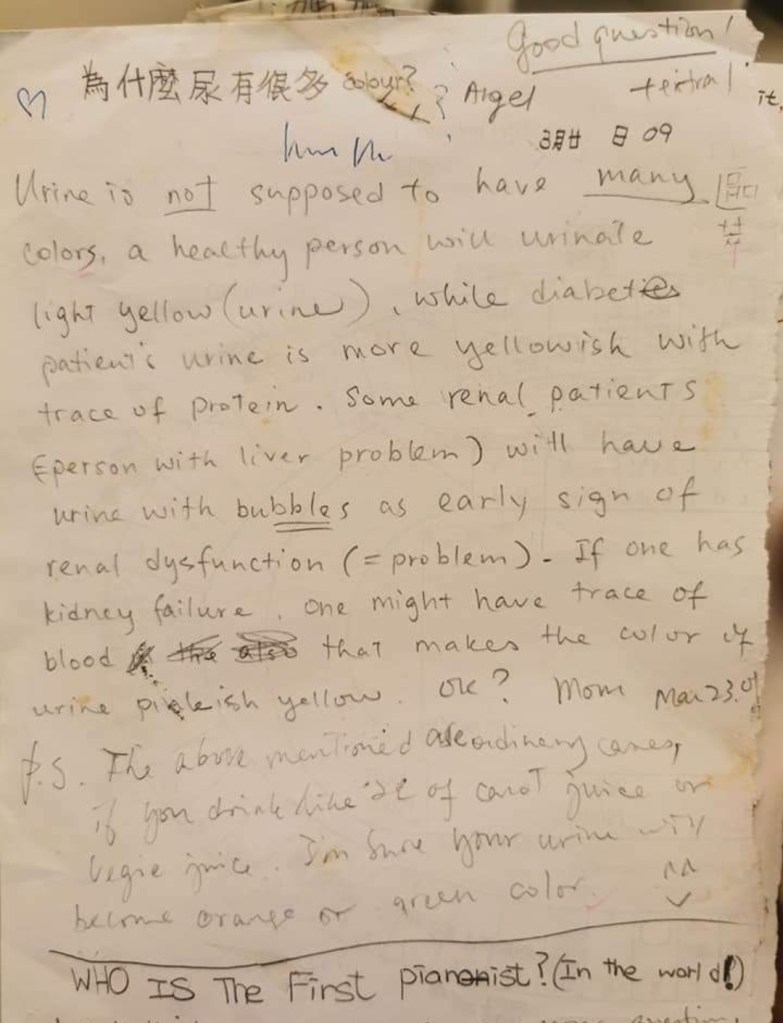 Good question!
為什麼尿有很多 colour? ? Aigel
+ extra!
it,
3月廿 日 09
Urine is not supposed to have many
colors, a healthy person will urinate
light yellow (urine), while diabetes
patient's urine is more yellowish with
trace of protein. Some renal patients
(person with liver problem) will have
urine with bubbles as early sign of
renal dysfunction (= problem). If one has
kidney failure, one might have trace of
blood that makes the color of
urine pinkish yellow. OK? Mom Mar 23.09
P.S. The above mentioned are ordinary cases,
if you drink like 2L of carot juice or
vegie juice. I'm sure your urine will
become orange or green color. ^^
WHO IS The First pianonist? (In the world!)